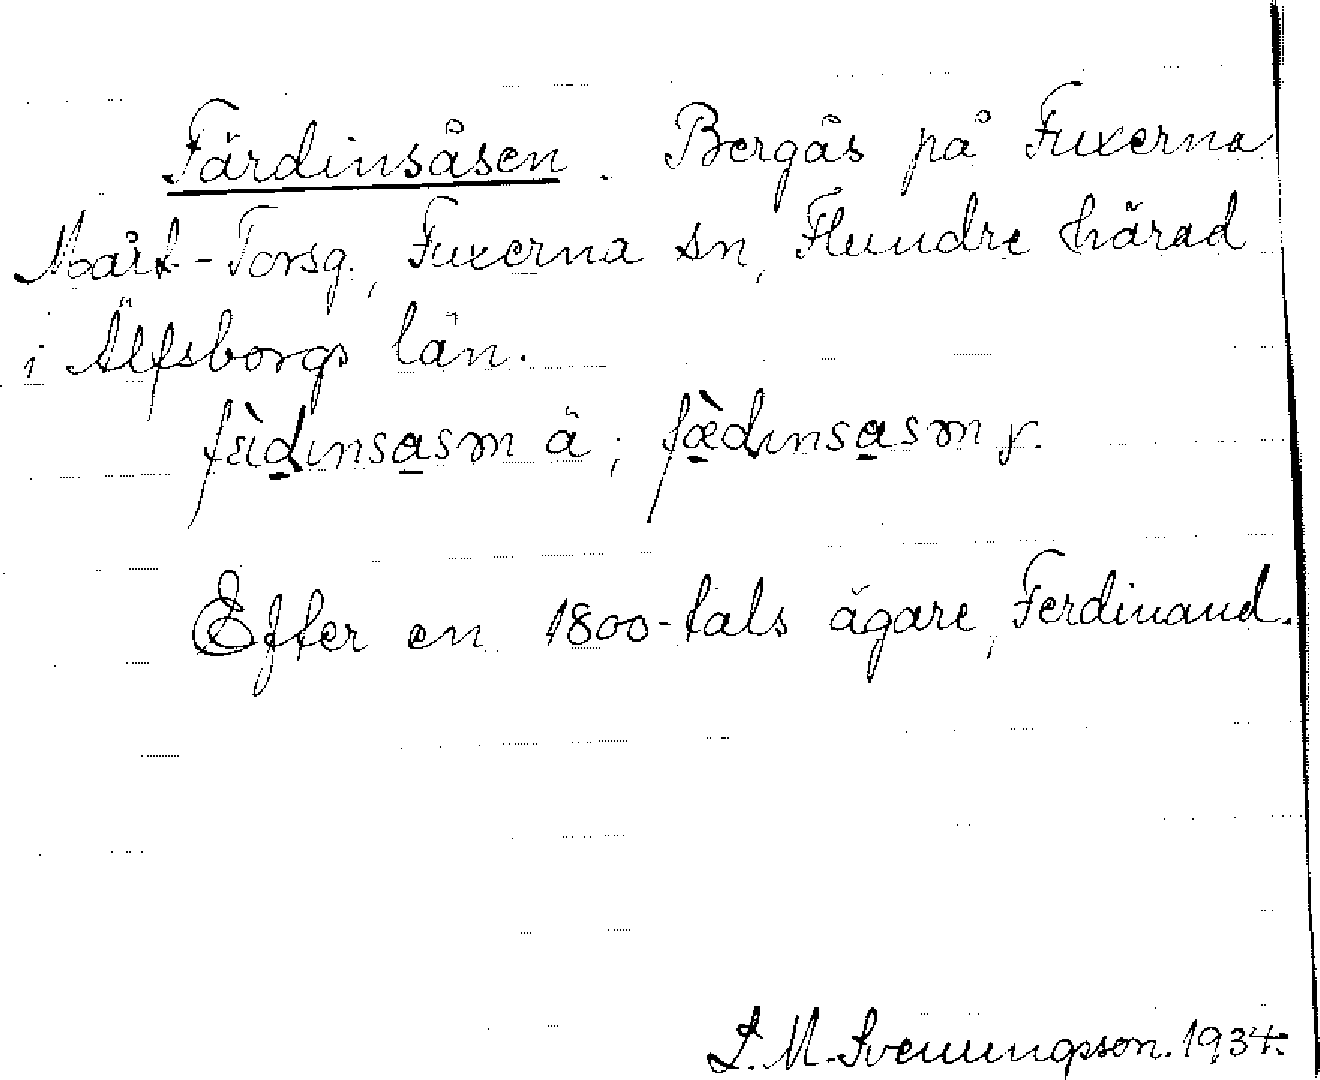 Färdinsåsen. Bergås på Fuxerna
Mårt-Torsg., Fuxerna sn, Flundre härad
i Älfsborgs län.
ä; y.
Efter en 1800-tals ägare, Ferdinand.
L. M. Svenungsson. 1934.